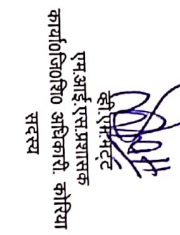 व्ही.एस.भट्ट
एम.आई.एस.प्रशासक
कार्या0जि0शि0 अधिकारी. कोरिया
सदस्य